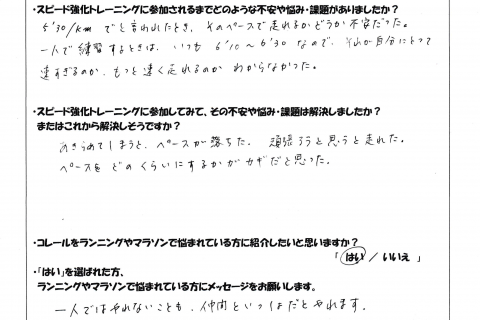 ・スピード強化トレーニングに参加されるまでどのような不安や悩み・課題がありましたか？
5'30/km でと言われたとき、そのペースで走れるかどうか不安だった。
一人で練習するときは、いつも 6'10〜6'30 なので、それが自分にとって
速すぎるのか、もっと速く走れるのか わからなかった。
・スピード強化トレーニングに参加してみて、その不安や悩み・課題は解決しましたか？
またはこれから解決しそうですか？
あきらめてしまうと、ペースが落ちた。 頑張ろうと思うと走れた。
ペースを どのくらいにするかがカギだと思った。
・コレールをランニングやマラソンで悩まれている方に紹介したいと思いますか？
「 はい / いいえ 」
・「はい」を選ばれた方、
ランニングやマラソンで悩まれている方にメッセージをお願いします。
一人ではやれないことも、仲間といっしょだとやれます。